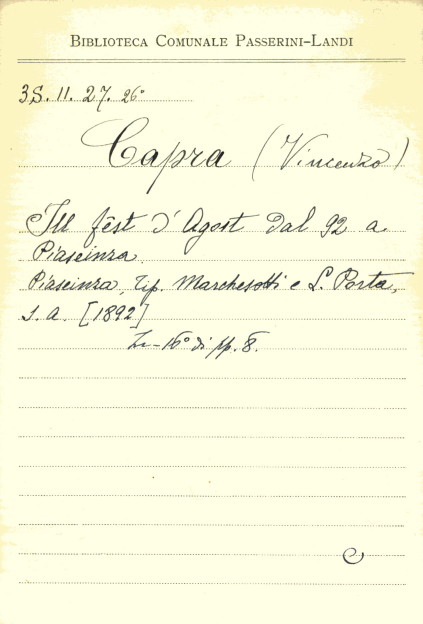 BIBLIOTECA COMUNALE PASSERINI-LANDI
3S. 11. 27. 26°
Capra (Vincenzo)
Ill fëst d'Agost dal 92 a
Piaseinza.
Piaseinza, Tip. Marchesotti e L. Porta,
s. a. [1892]
In-16° di pp. 8.